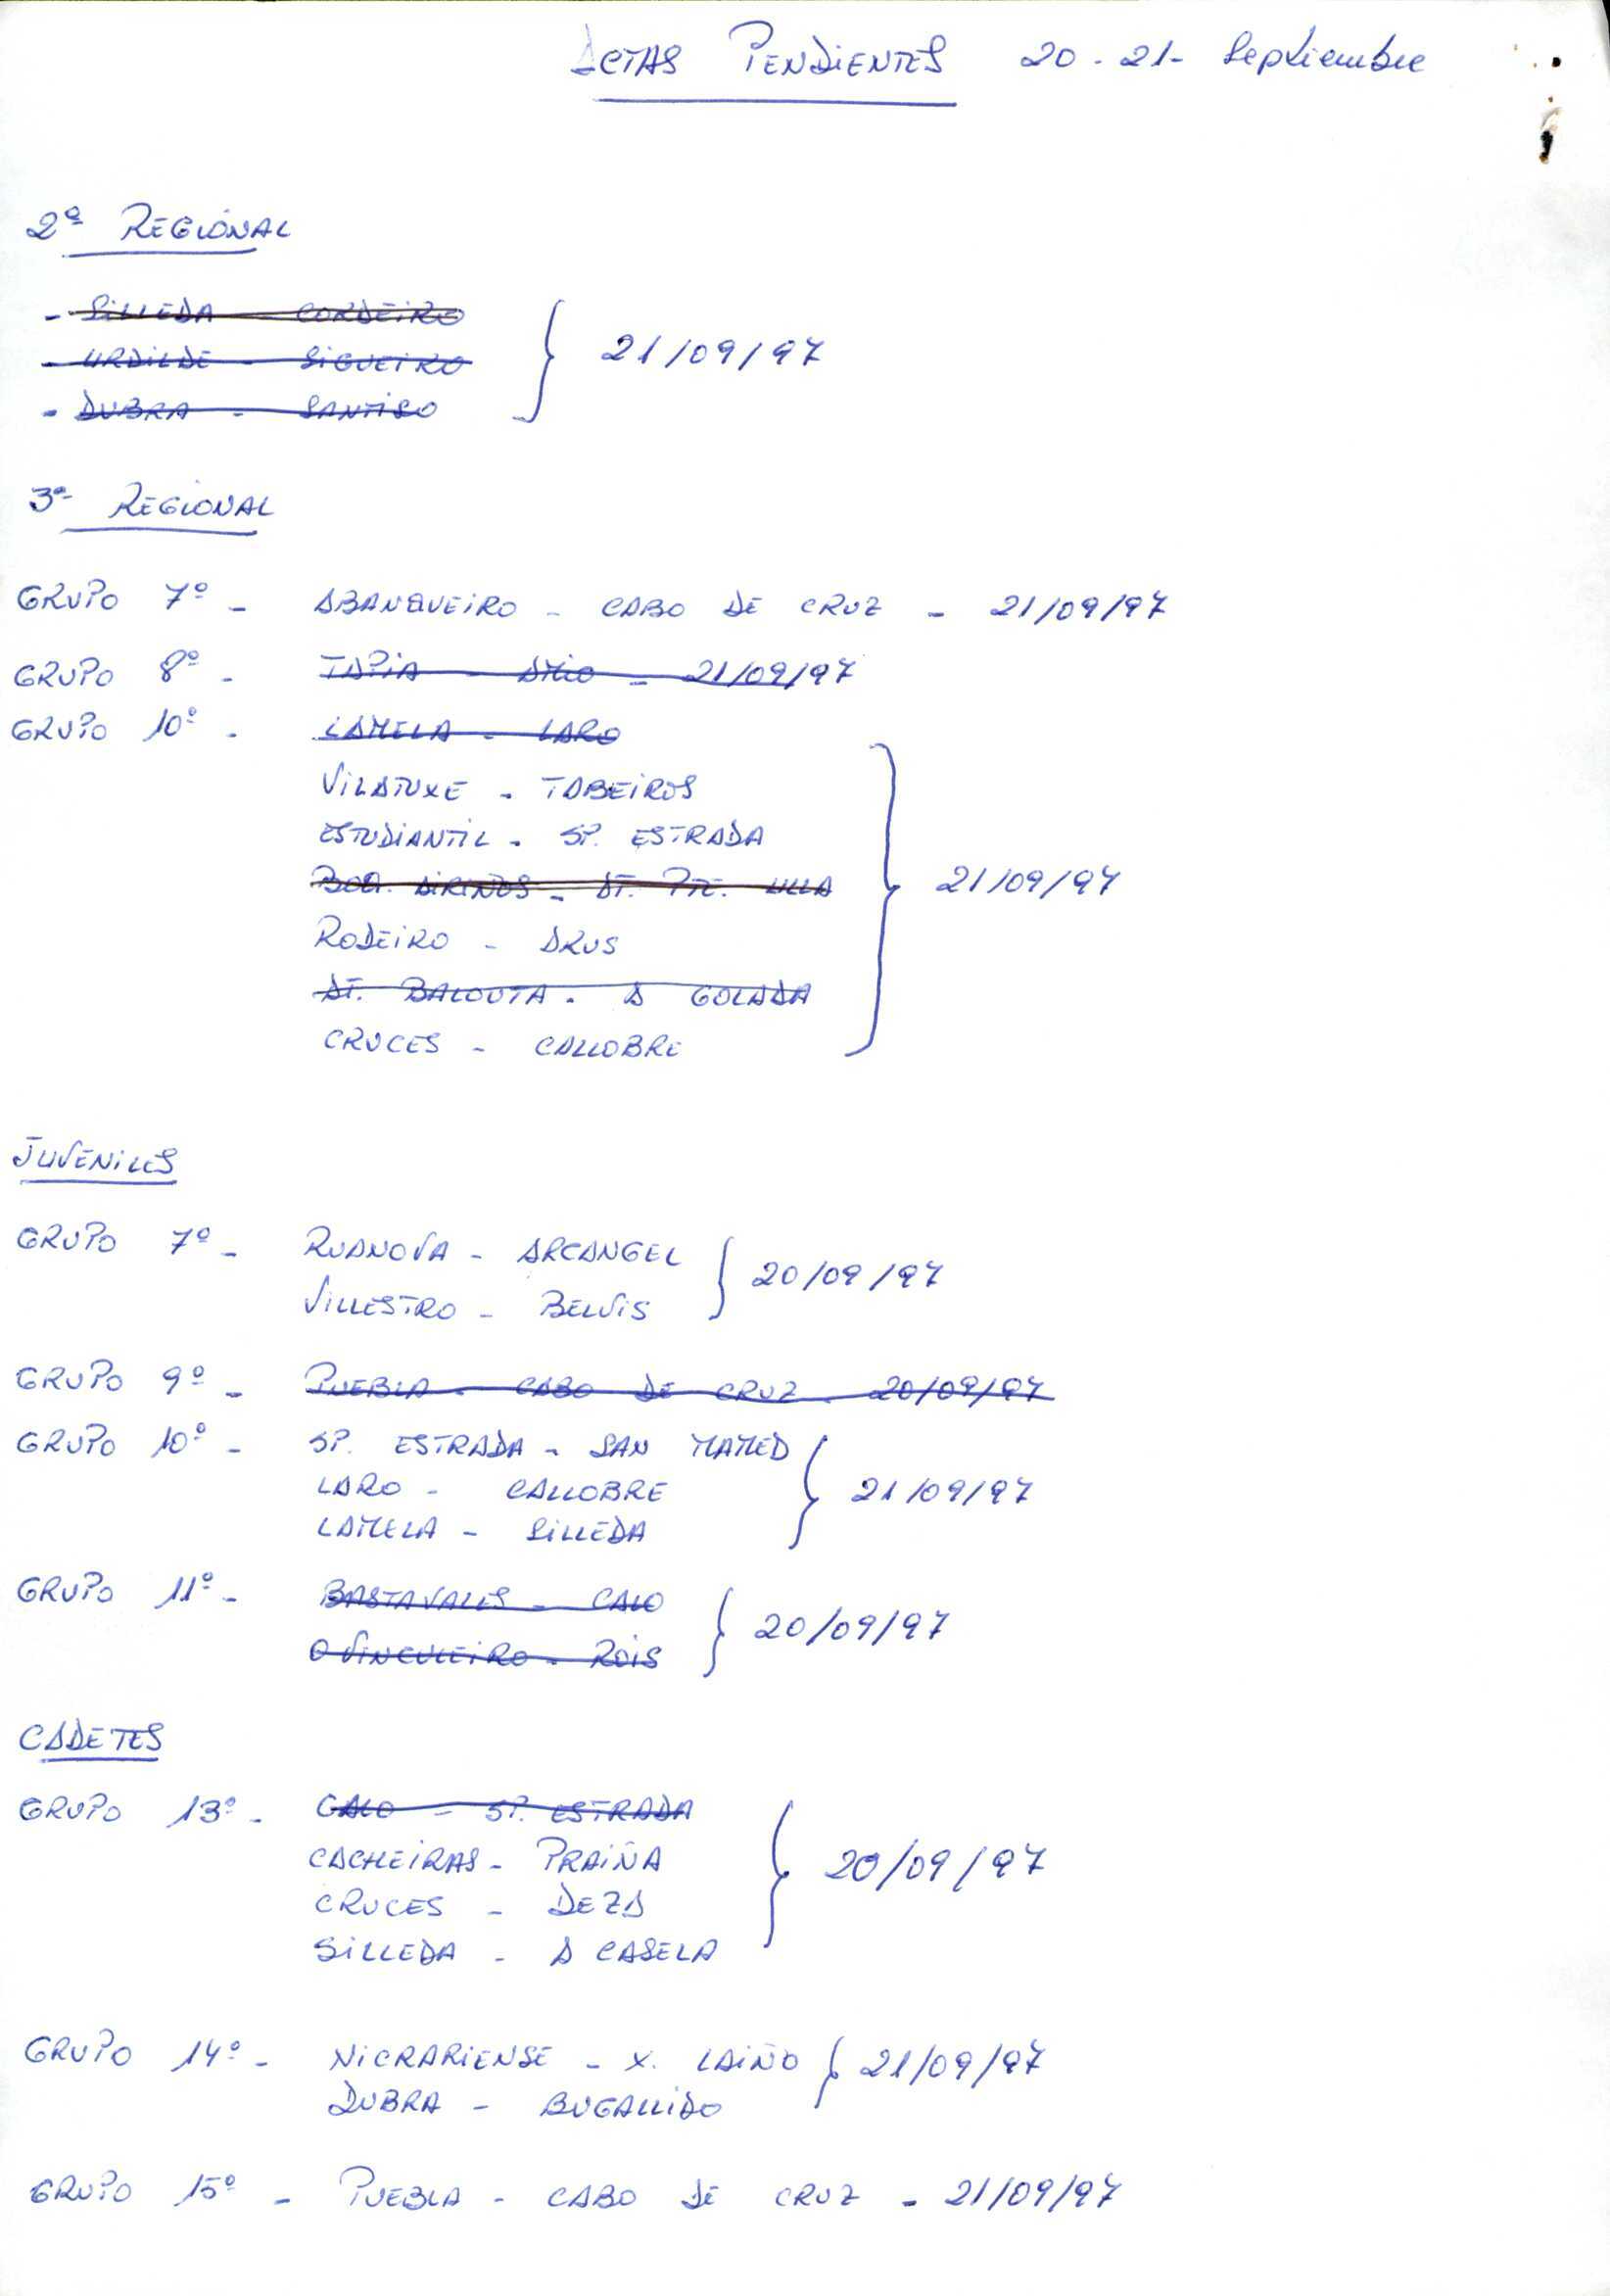 ACTAS PENDIENTES 20-21- Septiembre
2ª REGIONAL
- SILLEDA - CORDEIRO
- URDILDE - SIGUEIRO
- DUBRA - SANTISO
21/09/97
3ª REGIONAL
GRUPO 7º - ABANQUEIRO - CABO DE CRUZ - 21/09/97
GRUPO 8º - TAPIA - AMIO - 21/09/97
GRUPO 10º - LAMELA - LARO
VILATUXE - TABEIROS
ESTUDIANTIL - SP. ESTRADA
BOA. DIRIÑOS - AT. PTE. ULLA
21/09/97
RODEIRO - ARUS
AT. BALOUTA - A GOLADA
CRUCES - CALLOBRE
JUVENILES
GRUPO 7º - RUANOVA - ARCANGEL
20/09/97
VILLESTRO - BELVIS
GRUPO 9º - PUEBLA - CABO DE CRUZ - 20/09/97
GRUPO 10º - SP. ESTRADA - SAN MAMED
LARO - CALLOBRE
21/09/97
LAMELA - SILLEDA
GRUPO 11º - BASTAVALES - CALO
20/09/97
O VINCULEIRO - ROIS
CADETES
GRUPO 13º - CALO - SP. ESTRADA
CACHEIRAS - PRAIÑA
20/09/97
CRUCES - DEZA
SILLEDA - A CASELA
GRUPO 14º - NICRARIENSE - X. LAIÑO
21/09/97
DUBRA - BUGALLIDO
GRUPO 15º - PUEBLA - CABO DE CRUZ - 21/09/97